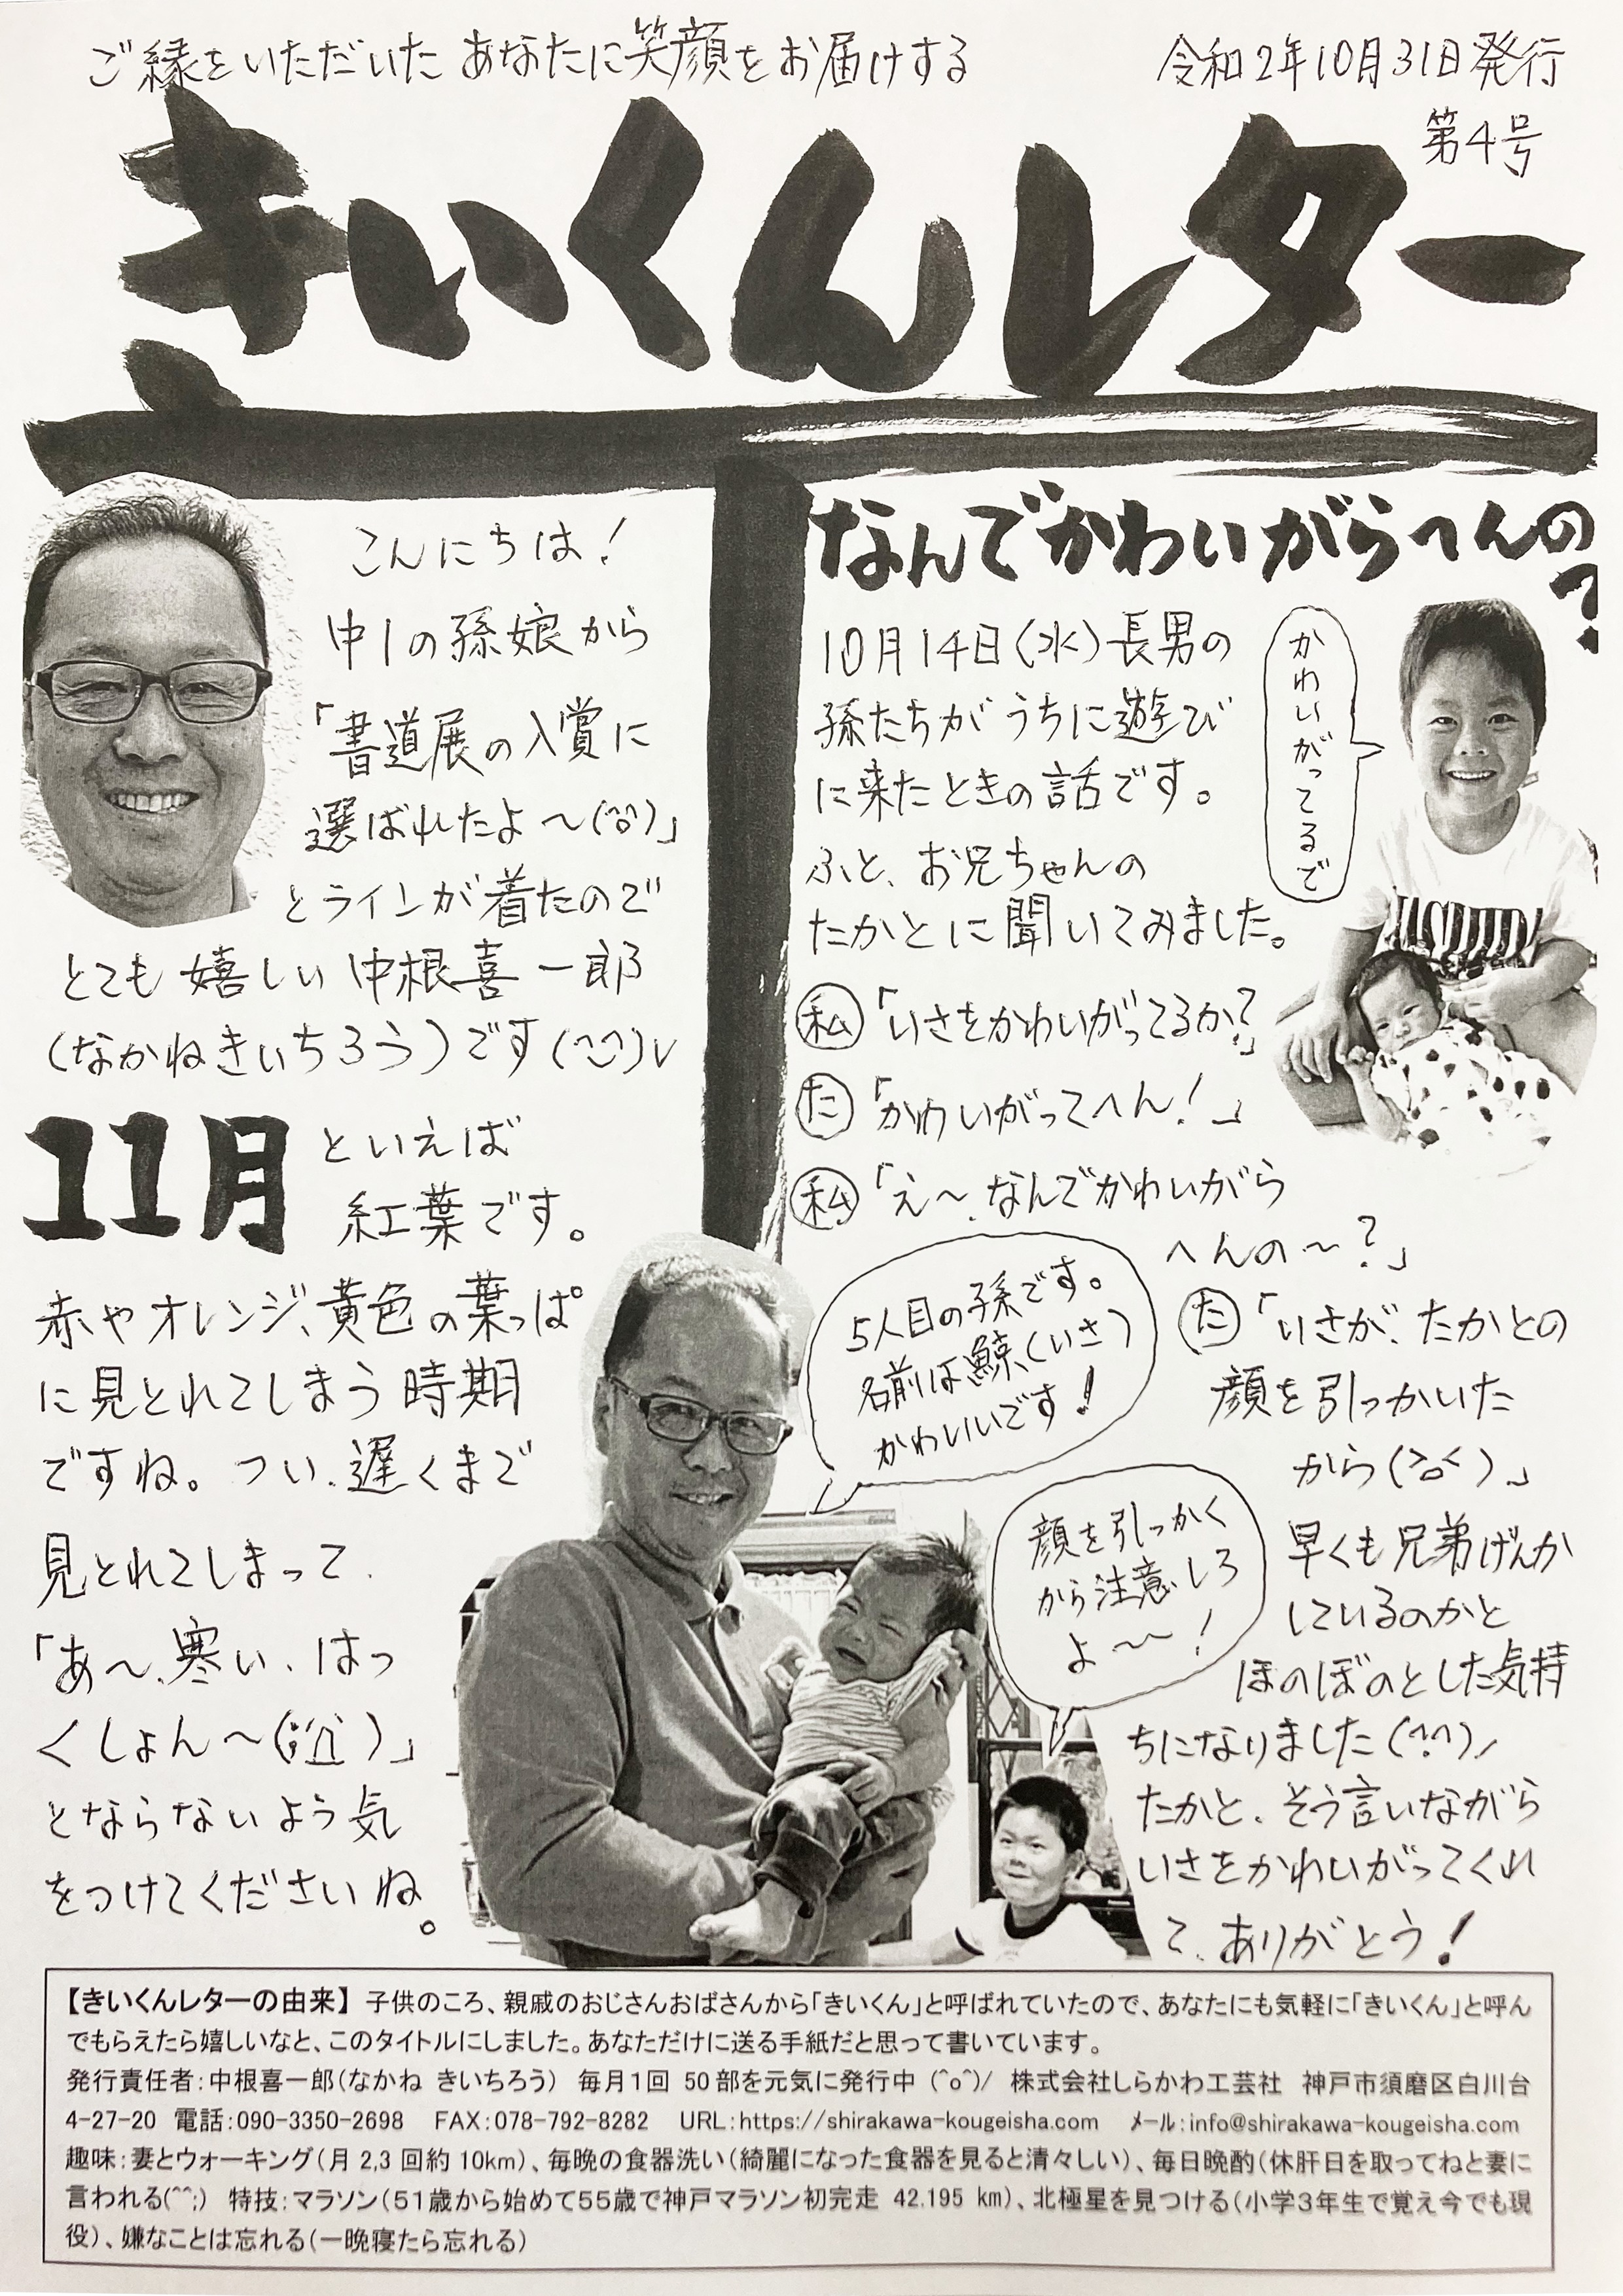 ご縁をいただいた あなたに笑顔をお届けする
令和2年10月31日発行
第4号
きいくんレター
こんにちは!
中1の孫娘から
「書道展の入賞に
選ばれたよ～(^o^)」
とラインが着たので
とても嬉しい 中根喜一郎
(なかねきいちろう)です(^_^)v
11月 といえば
紅葉です。
赤やオレンジ、黄色の葉っぱ
に見とれてしまう時期
ですね。つい、遅くまで
見とれてしまって、
「あ～、寒い、はっ
くしょん～(>Д<)」
とならないよう気
をつけてくださいね。
なんでかわいがらへんの?
10月14日(水)長男の
孫たちがうちに遊び
に来たときの話です。
ふと、お兄ちゃんの
たかとに聞いてみました。
かわいがってるで
私「いさをかわいがってるか?」
た「かわいがってへん!」
私「え～、なんでかわいがら
へんの～?」
た「いさが、たかとの
顔を引っかいた
から(>o<)」
5人目の孫です。
名前は鯨(いさ)
かわいいです!
顔を引っかく
から注意しろ
よ～～!
早くも兄弟げんか
しているのかと
ほのぼのとした気持
ちになりました(^^)/
たかと、そう言いながら
いさをかわいがってくれ
て、ありがとう!
【きいくんレターの由来】子供のころ、親戚のおじさんおばさんから「きいくん」と呼ばれていたので、あなたにも気軽に「きいくん」と呼ん
でもらえたら嬉しいなと、このタイトルにしました。あなただけに送る手紙だと思って書いています。
発行責任者:中根喜一郎(なかね きいちろう) 毎月1回 50部を元気に発行中 (^o^)/ 株式会社しらかわ工芸社 神戸市須磨区白川台
4-27-20 電話:090-3350-2698 FAX:078-792-8282 URL:https://shirakawa-kougeisha.com メール:info@shirakawa-kougeisha.com
趣味:妻とウォーキング(月2,3回約10km)、毎晩の食器洗い(綺麗になった食器を見ると清々しい)、毎日晩酌(休肝日を取ってねと妻に
言われる(^^;) 特技:マラソン(51歳から始めて55歳で神戸マラソン初完走 42.195 km)、北極星を見つける(小学3年生で覚え今でも現
役)、嫌なことは忘れる(一晩寝たら忘れる)